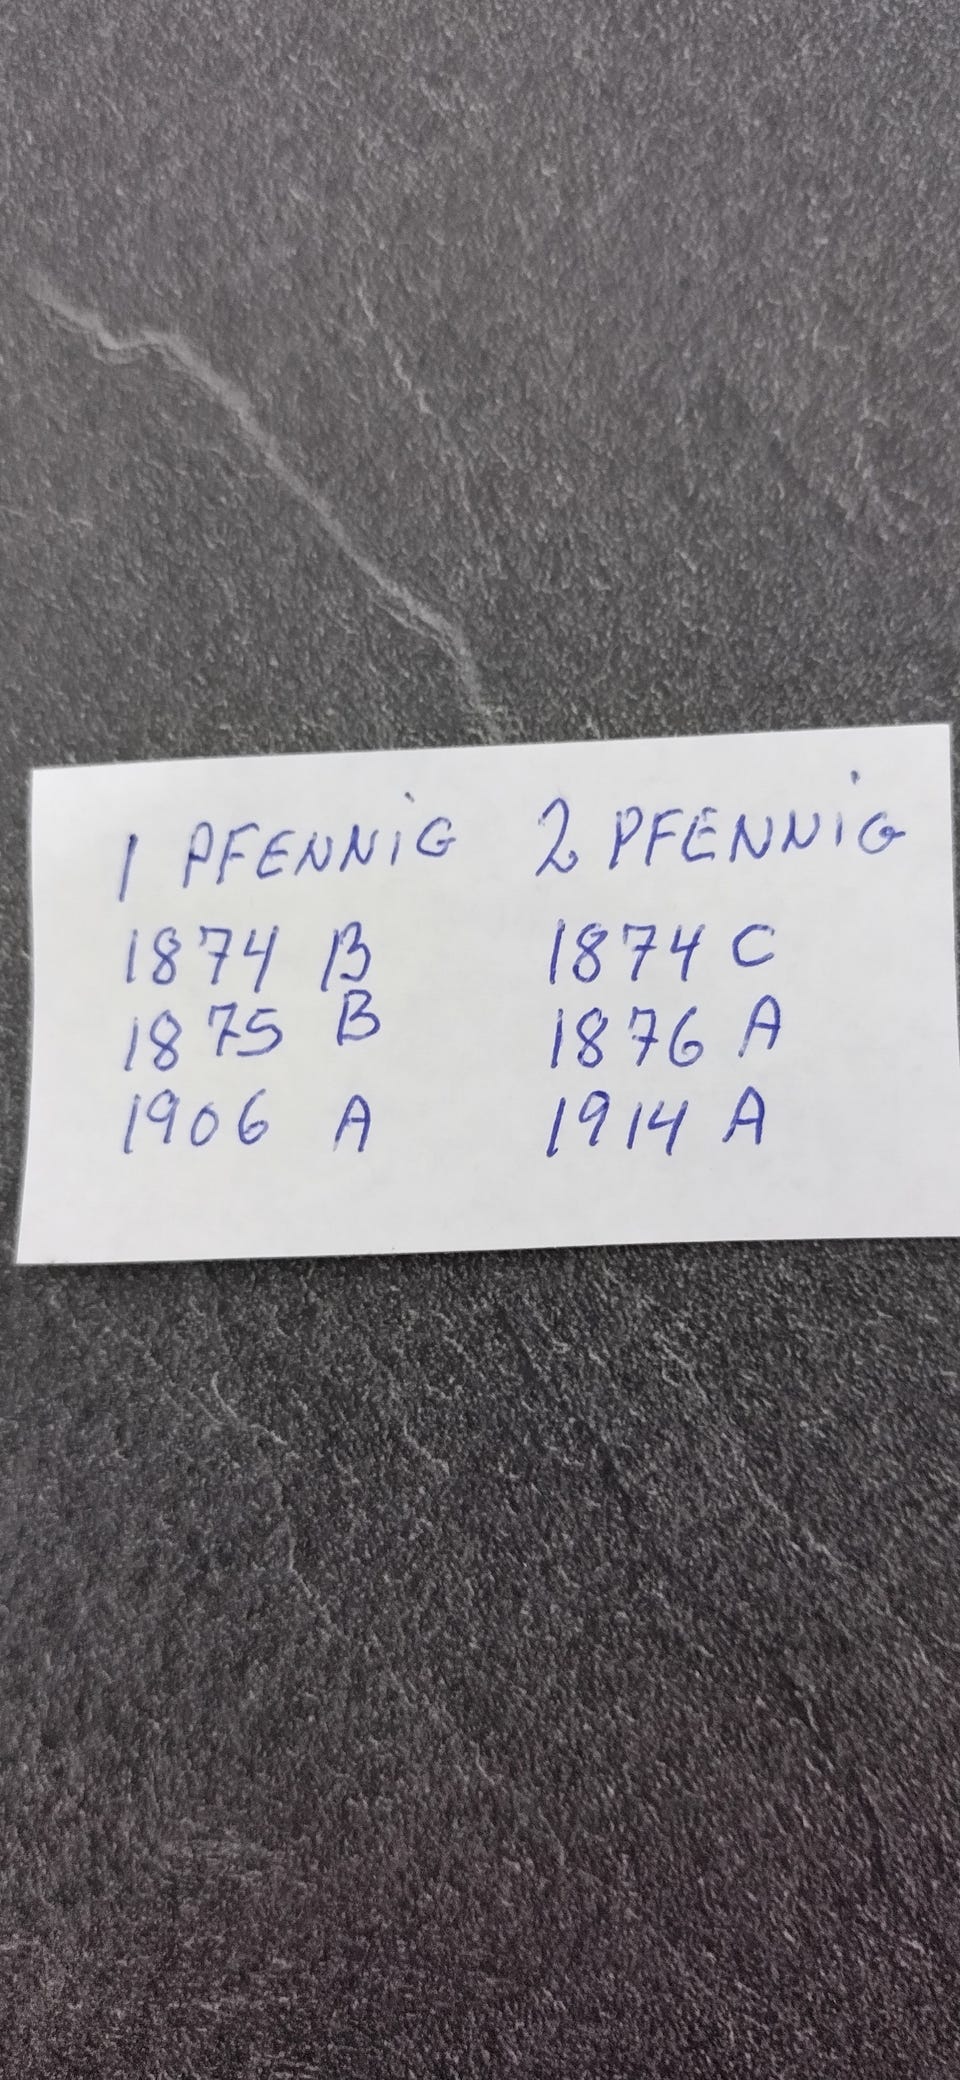 1 PFENNiG 2 PFENNiG
1874 B 1874 C
1875 B 1876 A
1906 A 1914 A